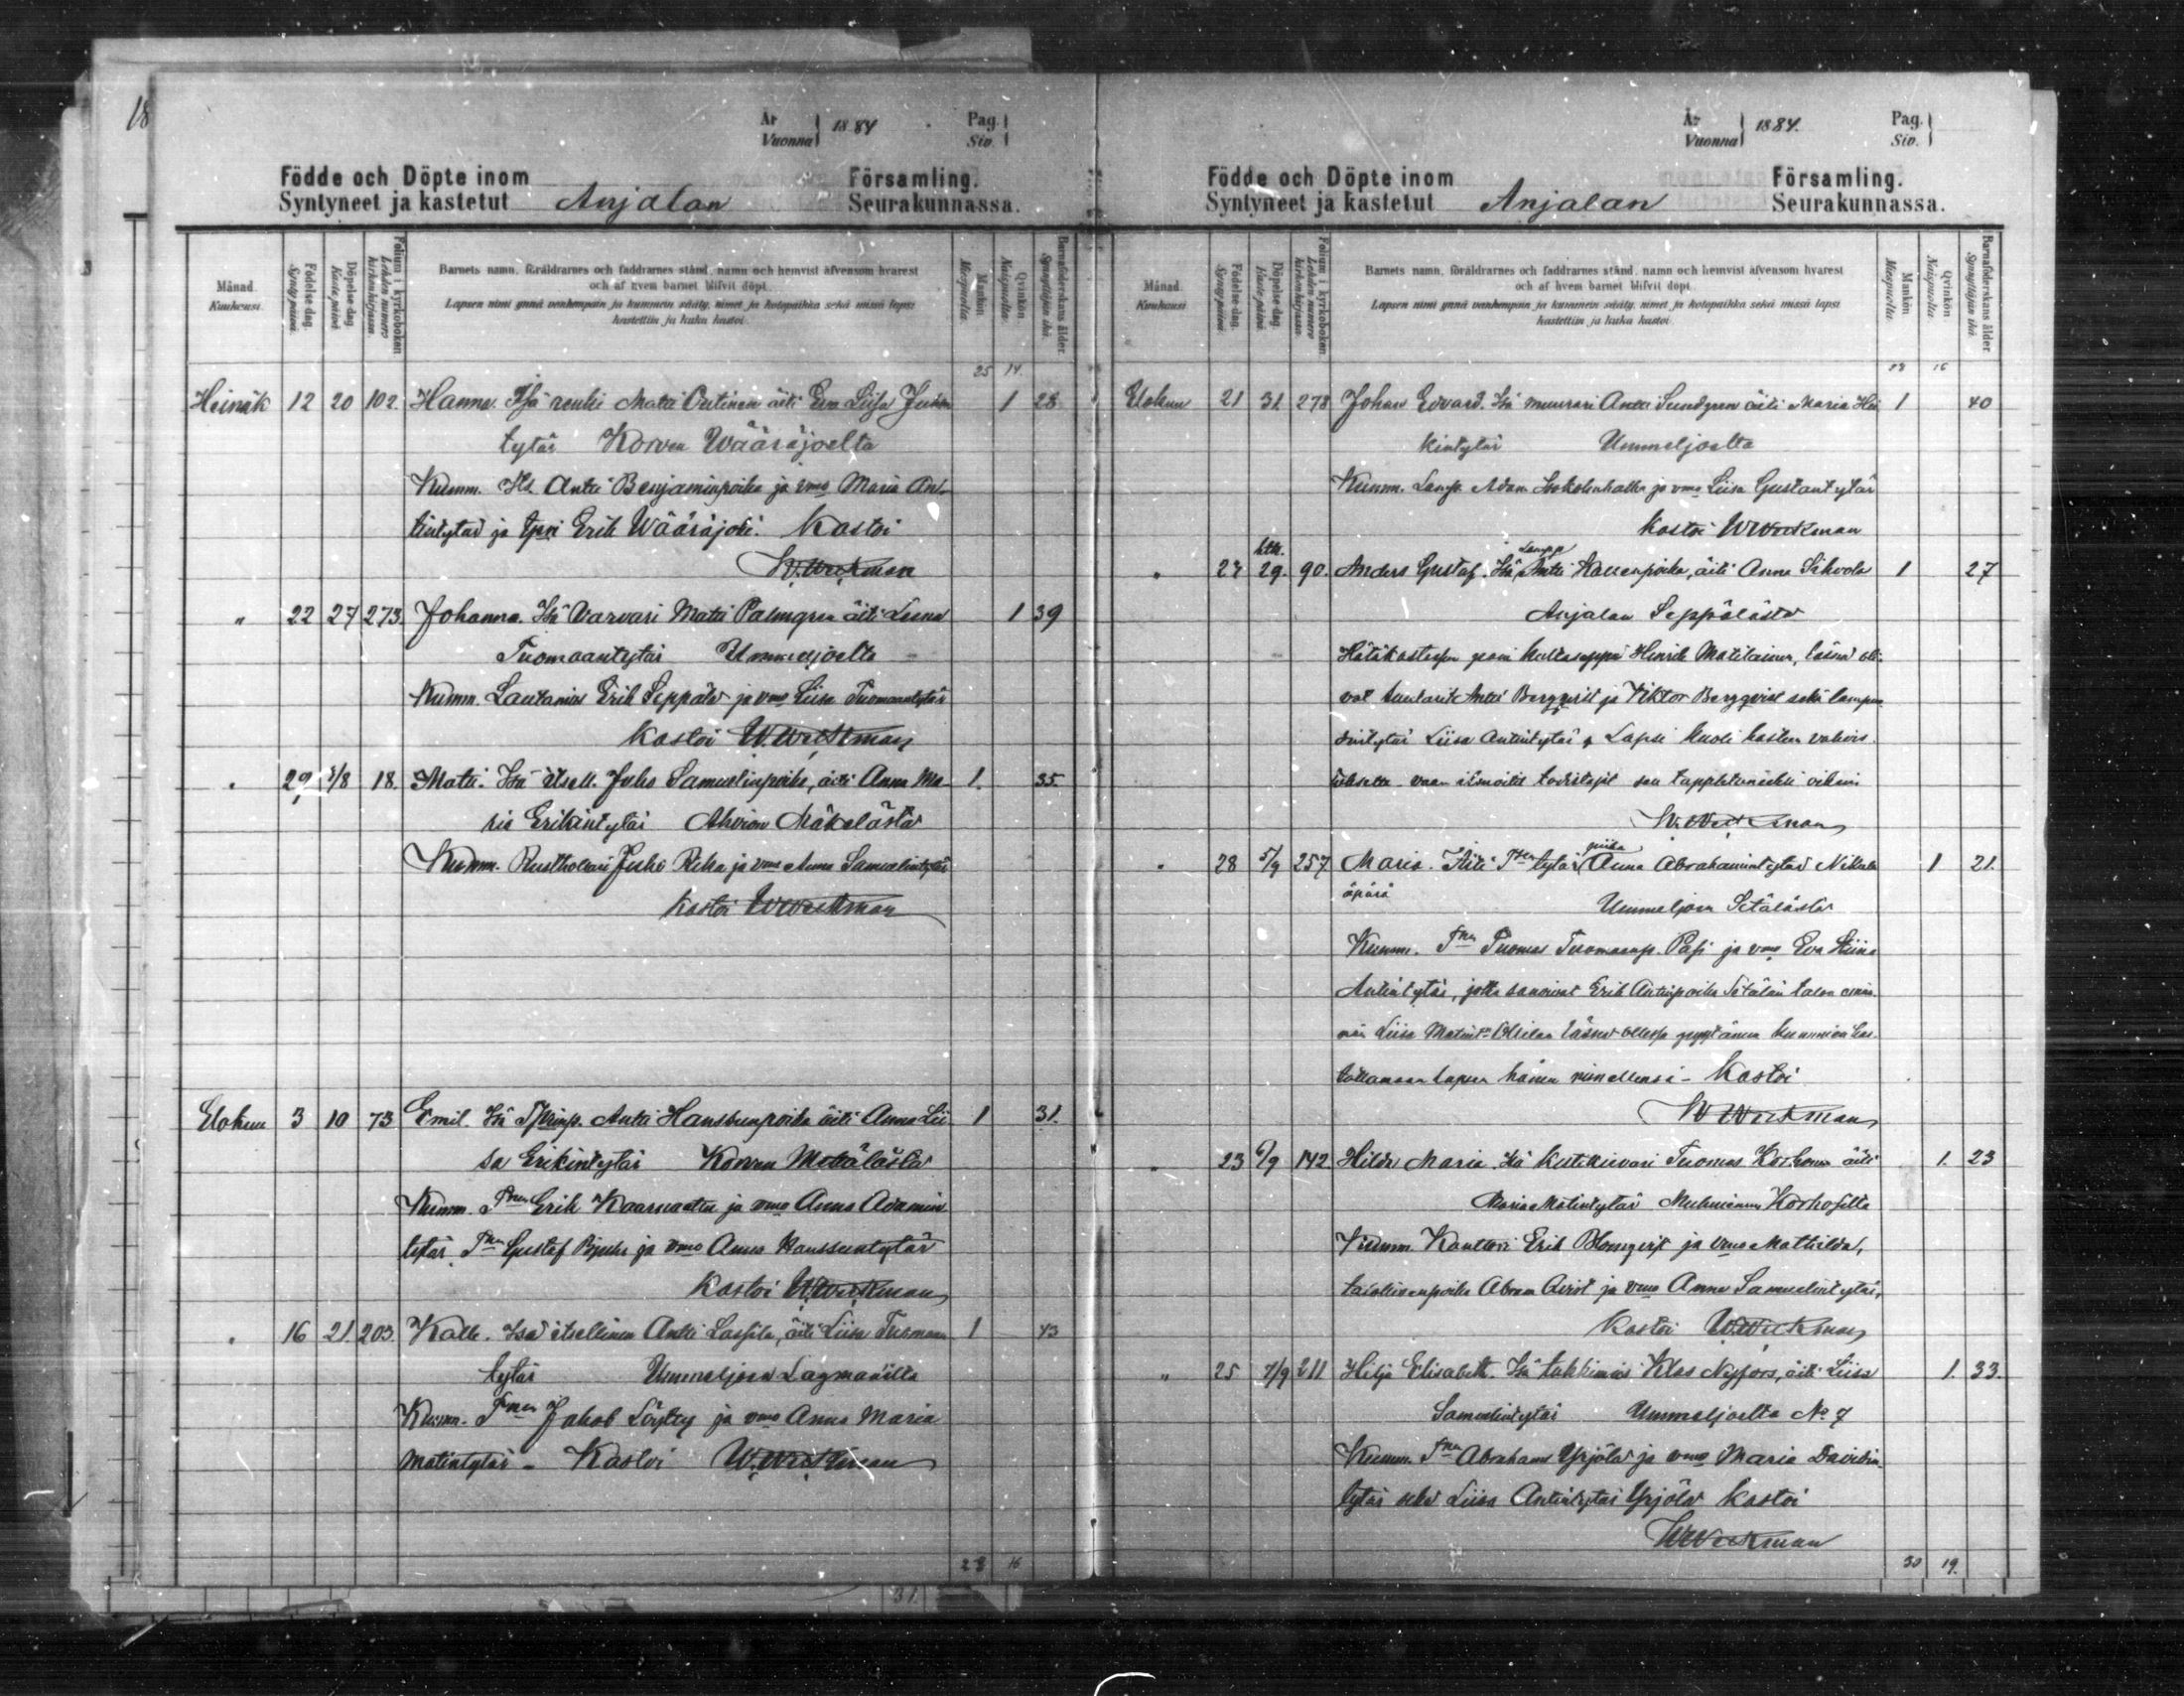 18
År
Vuonna
1884
Pag.
Siv.
Födde och Döpte inom
Församling.
Syntyneet ja kastetut Anjalan Seurakunnassa.
Månad
Kuukausi
Födelse-dag.
Synty-päivä.
Döpelse-dag.
Kaste-päivä.
Folium i kyrkoboken
Lehden numero kirkonkirjassa.
Barnets namn, föräldrarnes och faddrarnes stånd, namn och hemvist äfvensom hvarest
och af hvem barnet blifvit döpt.
Lapsen nimi ynnä vanhempain ja kummein sääty, nimet ja kotopaikka sekä missä lapsi
kastettiin ja kuka kastoi.
Mankön
Miespuolia.
Qvinkön
Naispuolia.
Barnaföderskans ålder.
Synnyttäjän ikä.
25 14.
Heinäk 12 20 102. Hanna. Isä renki Matti Outinen äiti Eva Liisa Juhan 1 28
tytär Korven Wääräjoelta
Kumm. Antti Benjaminpoika ja vmo Maria An-
tintytär ja Erik Wääräjoki. Kastoi
W. Weckman
" 22 27 273. Johanna. Isä Varvari Matti Palmgren äiti Leena 1 39
Tuomaantytär Ummeljoelta
Kumm. Lautamies Erik Seppälä ja vmo Liisa Tuomaantytär
Kastoi W. Weckman
" 29 3/8 18. Matti. Isä itsell. Juho Samuelinpoika, äiti Anna Ma- 1. 35.
ria Erikintytär Ahvion Mäkelästä
Kumm. Rusthollari Juho Rika ja vmo Anna Samuelintytär
Kastoi W Weckman
Elokuu 3 10 73 Emil. Isä Antti Hanssunpoika äiti Anna Lii 1 31.
sa Erikintytär Korven
Kumm. Tnen Erik ja vmo Anna Adamin
tytär, Tnen Gustaf ja vmo Anna Hanssuntytär
Kastoi W. Weckman
" 16 21 203 Kalle. Isä itsellinen Antti Lassila, äiti Liisa Tuomaan 1 43
tytär Ummeljoen Lagmanilta
Kumm. Tnen Jakob Löytty ja vmo Anna Maria
Matintytär - Kastoi W. Weckman
28 16
31.
År
Vuonna
1884.
Pag.
Siv.
Födde och Döpte inom
Församling.
Syntyneet ja kastetut Anjalan Seurakunnassa.
Månad
Kuukausi
Födelse-dag.
Synty-päivä.
Döpelse-dag.
Kaste-päivä.
Folium i kyrkoboken
Lehden numero kirkonkirjassa.
Barnets namn, föräldrarnes och faddrarnes stånd, namn och hemvist äfvensom hvarest
och af hvem barnet blifvit döpt.
Lapsen nimi ynnä vanhempain ja kummein sääty, nimet ja kotopaikka sekä missä lapsi
kastettiin ja kuka kastoi.
Mankön
Miespuolia.
Qvinkön
Naispuolia.
Barnaföderskans ålder
Synnyttäjän ikä
28 16
Elokuu 21 31. 278 Johan Edvard. Isä muurari Antti Sundgren äiti Maria Hei 1 40
kintytär Ummeljoelta
Kumm. Lamp. Adam ja vmo Liisa Gustantytär
Kastoi W Weckman
" 27 29. 90. Anders Gustaf. Isä Lampp Antti Kallenpoika, äiti Anna Sihvola 1 27
Anjalan Seppälästä
Henrik Matilainen, läsnä oli-
vat Antti Bergqvist ja Viktor Bergqvist sekä
Liisa Antintytär. Lapsi kuoli
W. Weckman
" 28 5/9 257 Maria. Äiti Tnen tytär piika Anna Abrahamintytär Nikula 1 21.
äpärä
Ummeljoen Setälästä
Kumm. Tnen Tuomas Tuomaanp. Pasi ja vmo Eva Stiina
Antintytär, jotka sanoivat Erik Antinpoika Setälän talon emän-
nän Liisa läsnä ollessa pyytäneen kummien kas-
tattamaan lapsen hänen nimellensä - Kastoi
W Weckman
" 23 6/9 142 Hilda Maria Isä Tuomas Korhonen äiti 1. 23
Maria Matintytär Muhniemen Korhosilta
Kumm. Kanttori Erik Blomqvist ja vmo Mathilda,
talollisenpoika Abram ja vmo Anna Samuelintytär,
Kastoi W. Weckman
" 25 7/9 211 Hilja Elisabeth. Isä tukkimies Klas Nyfors, äiti Liisa 1. 33.
Samuelintytär Ummeljoelta No 7
Kumm. Tnen Abraham Yrjölä ja vmo Maria Davidin-
tytär sekä Liisa Antintytär Yrjölä Kastoi
W Weckman
30 19.